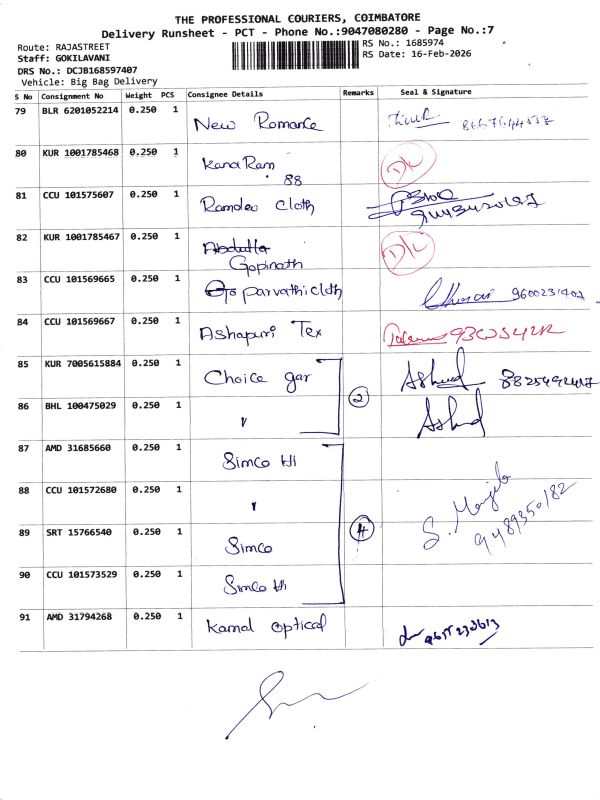 THE PROFESSIONAL COURIERS, COIMBATORE
Delivery Runsheet - PCT - Phone No.:9047080280 - Page No.:7
Route: RAJASTREET
Staff: GOKILAVANI
DRS No.: DCJB168597407
Vehicle: Big Bag Delivery
RS No.: 1685974
RS Date: 16-Feb-2026
S No Consignment No Weight PCS Consignee Details Remarks Seal & Signature
79 BLR 6201052214 0.250 1 New Romance
80 KUR 1001785468 0.250 1 Kana Ram D/L
88
81 CCU 101575607 0.250 1 Ramdev Cloth
82 KUR 1001785467 0.250 1 Abdulla D/L
Gopinath
83 CCU 101569665 0.250 1 parvathi cloth
84 CCU 101569667 0.250 1 Ashapuri Tex
85 KUR 7005615884 0.250 1 Choice gar 2
86 BHL 100475029 0.250 1 "
87 AMD 31685660 0.250 1 Simco HI
88 CCU 101572680 0.250 1 "
89 SRT 15766540 0.250 1 Simco 4 9489350182
90 CCU 101573529 0.250 1 Simco HI
91 AMD 31794268 0.250 1 Kamal optical